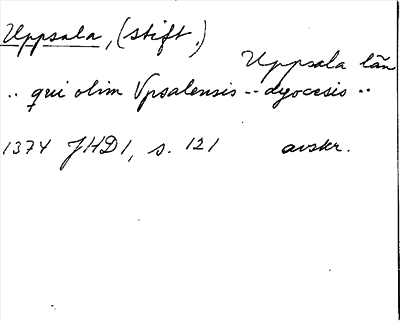 Uppsala, (stift.)
Uppsala län
.. qui olim Vpsalensis -- dyocesis ..
1374 JHD 1, s. 121 avskr.